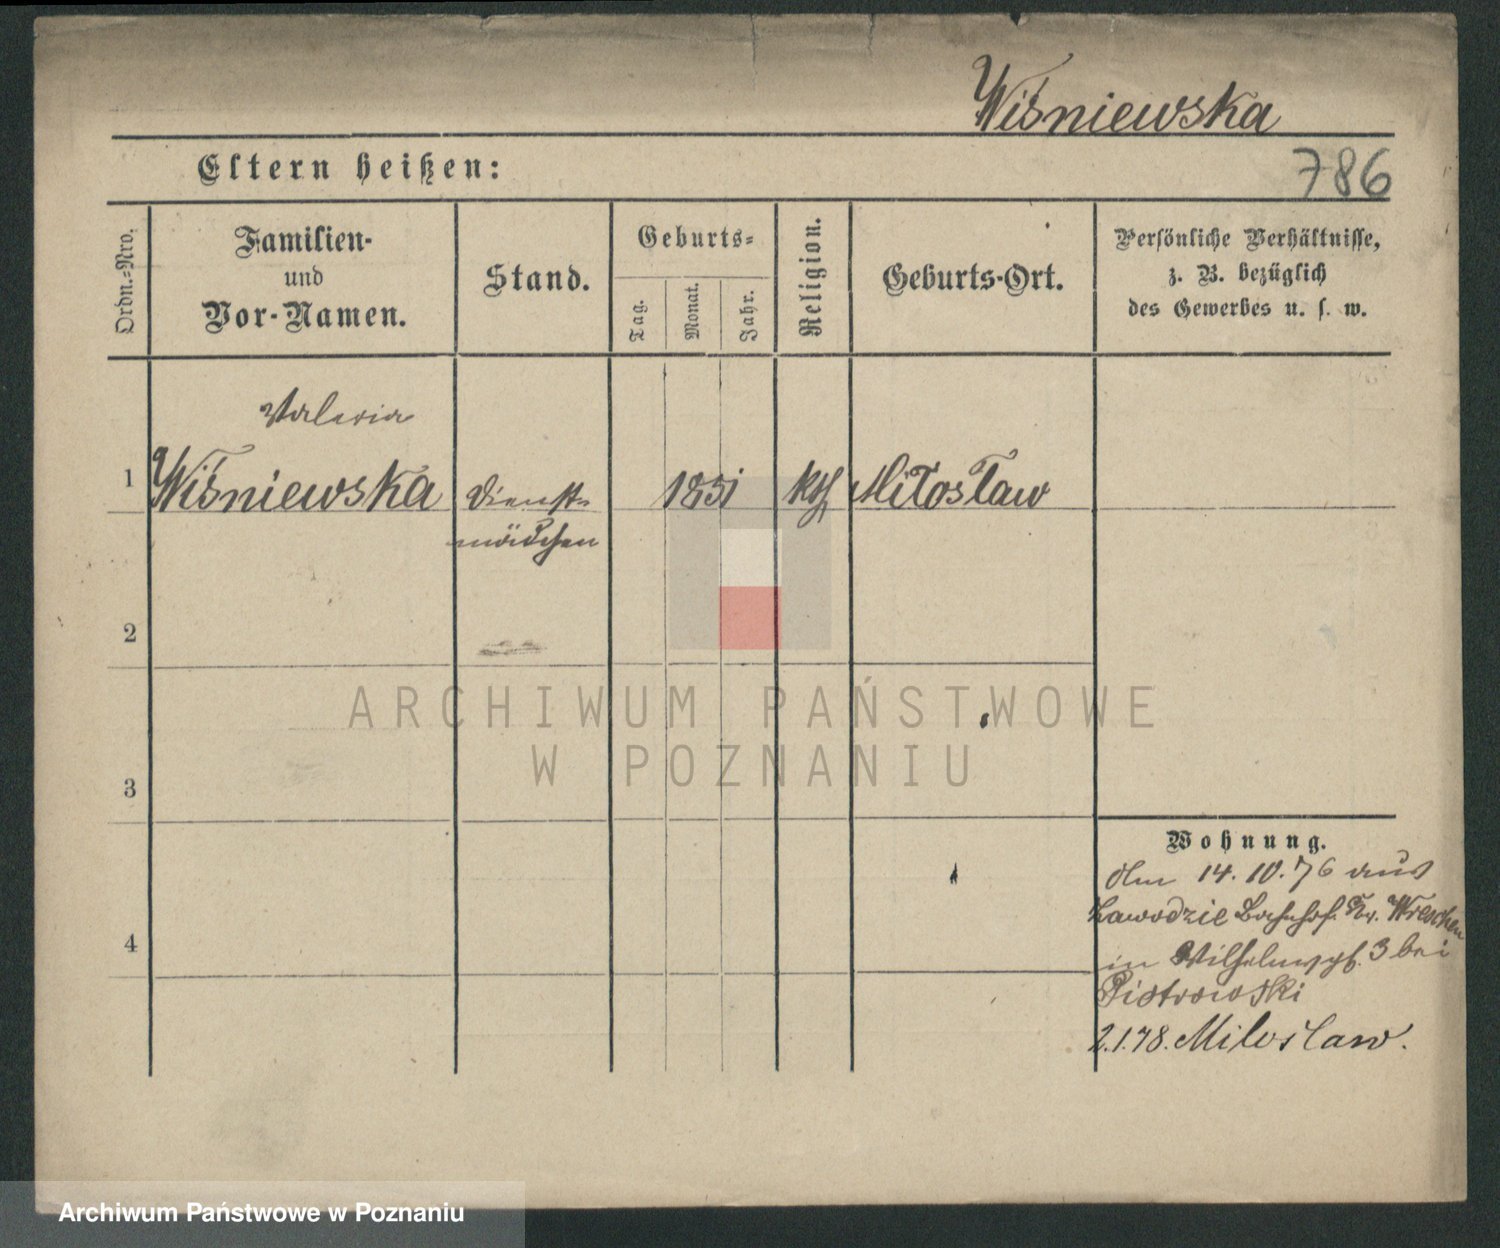 Wiśniewska
Eltern heißen:
786
Ordn.-Nro.
Familien-
und
Vor-Namen.
Stand.
Geburts-
Tag.
Monat.
Jahr.
Religion.
Geburts-Ort.
Persönliche Verhältnisse,
z. B. bezüglich
des Gewerbes u. s. w.
Valeria
1
Wiśniewska
Dienst-
mädchen
1851
kth
Miłosław
2
3
4
ARCHIWUM PAŃSTWOWE
W POZNANIU
Wohnung.
14.10.76 aus
Zawodzie Bahnhof. Kr. Wreschen
in Wilhelmspl. 3 bei
Piotrowski
2.1.78. Miloslaw.
Archiwum Państwowe w Poznaniu